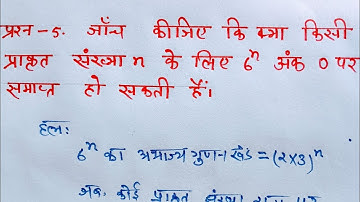 प्रश्न-5. जाँच कीजिए कि क्या किसी
प्राकृत संख्या n के लिए 6ⁿ अंक 0 पर
समाप्त हो सकती हैं।
हल:
6ⁿ का अभाज्य गुणनखंड = (2×3)ⁿ
अब, कोई प्राकृत संख्या